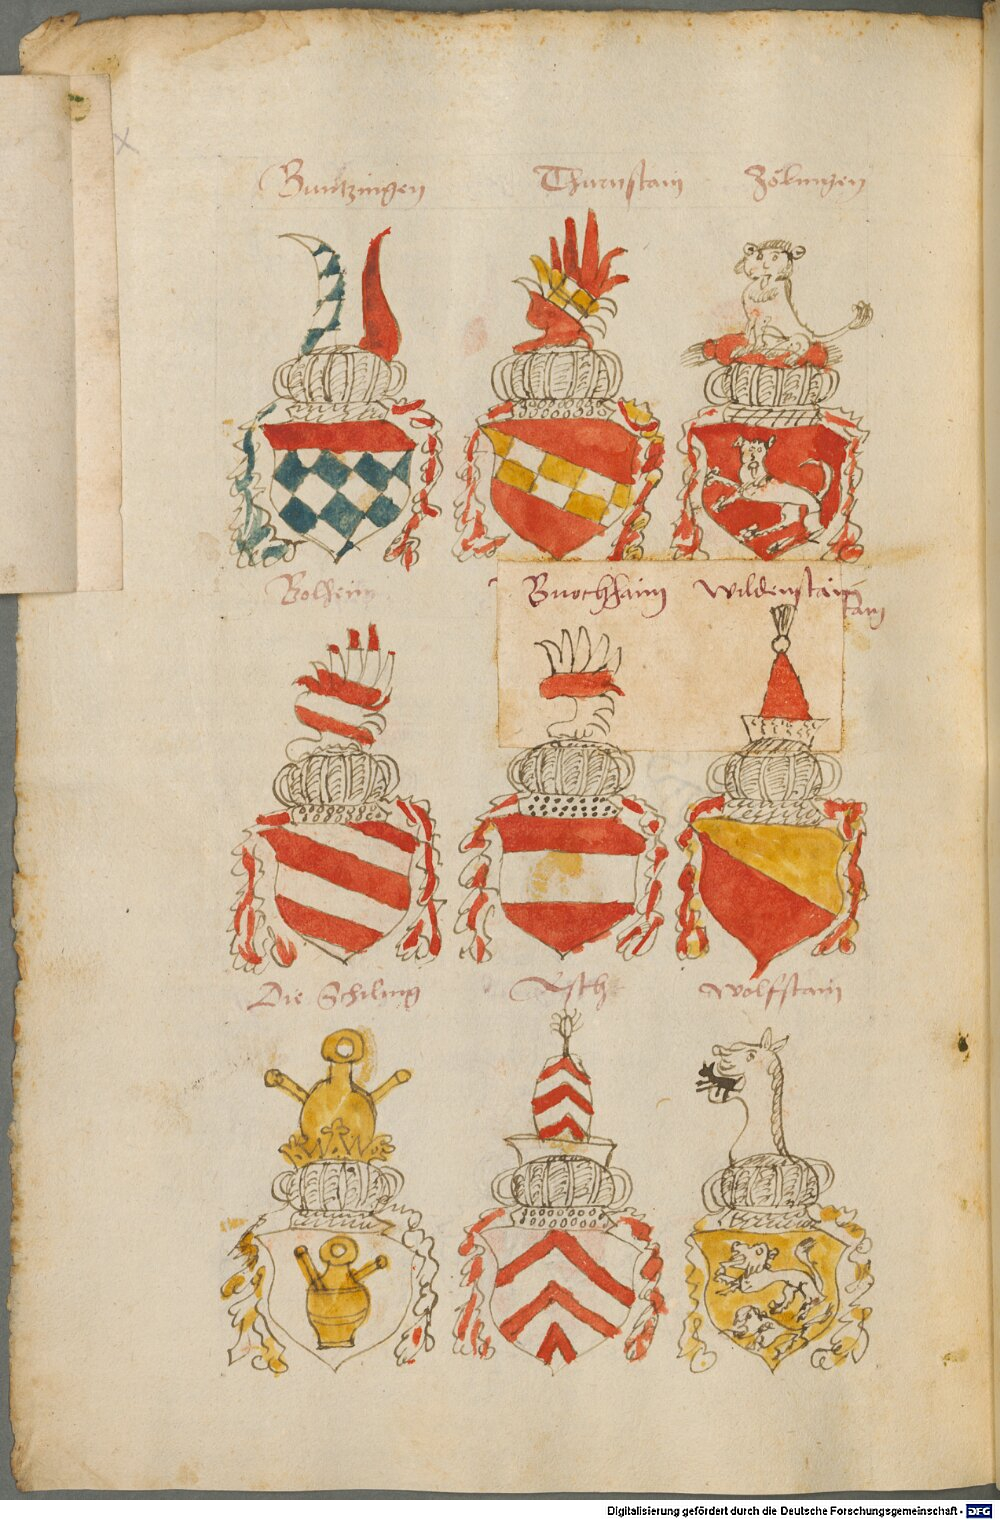 Buutzingen Thurnstain Zöbingen
Bolheim Buochhaim Wildenstain
tain
Die Schiling Esth Wolfstain
Digitalisierung gefördert durch die Deutsche Forschungsgemeinschaft - DFG